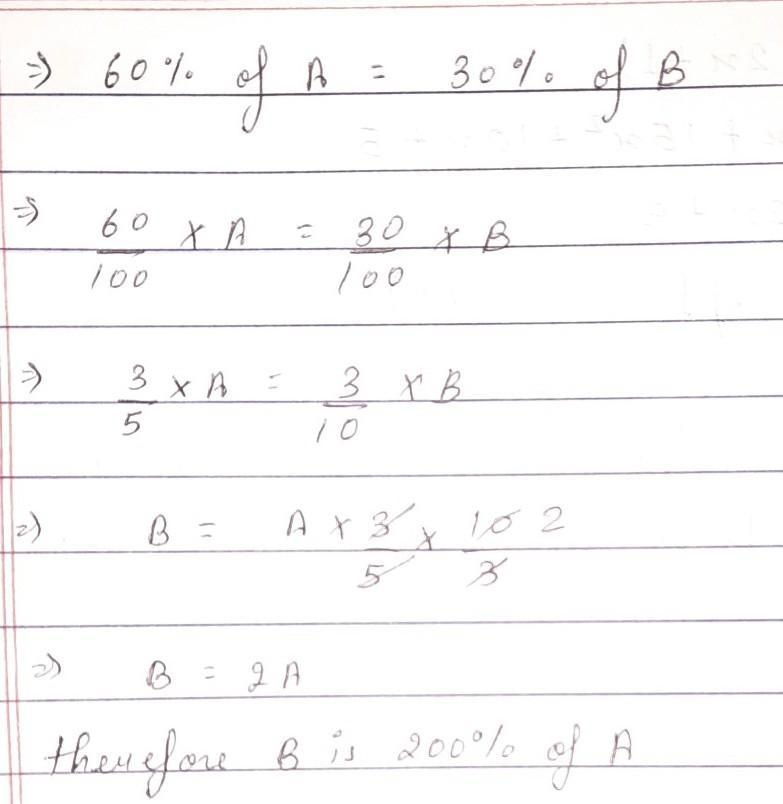 ⇒ 60% of A = 30% of B
⇒ 60/100 × A = 30/100 × B
⇒ 3/5 × A = 3/10 × B
⇒ B = A × 3/5 × 10/3 2
⇒ B = 2A
therefore B is 200% of A